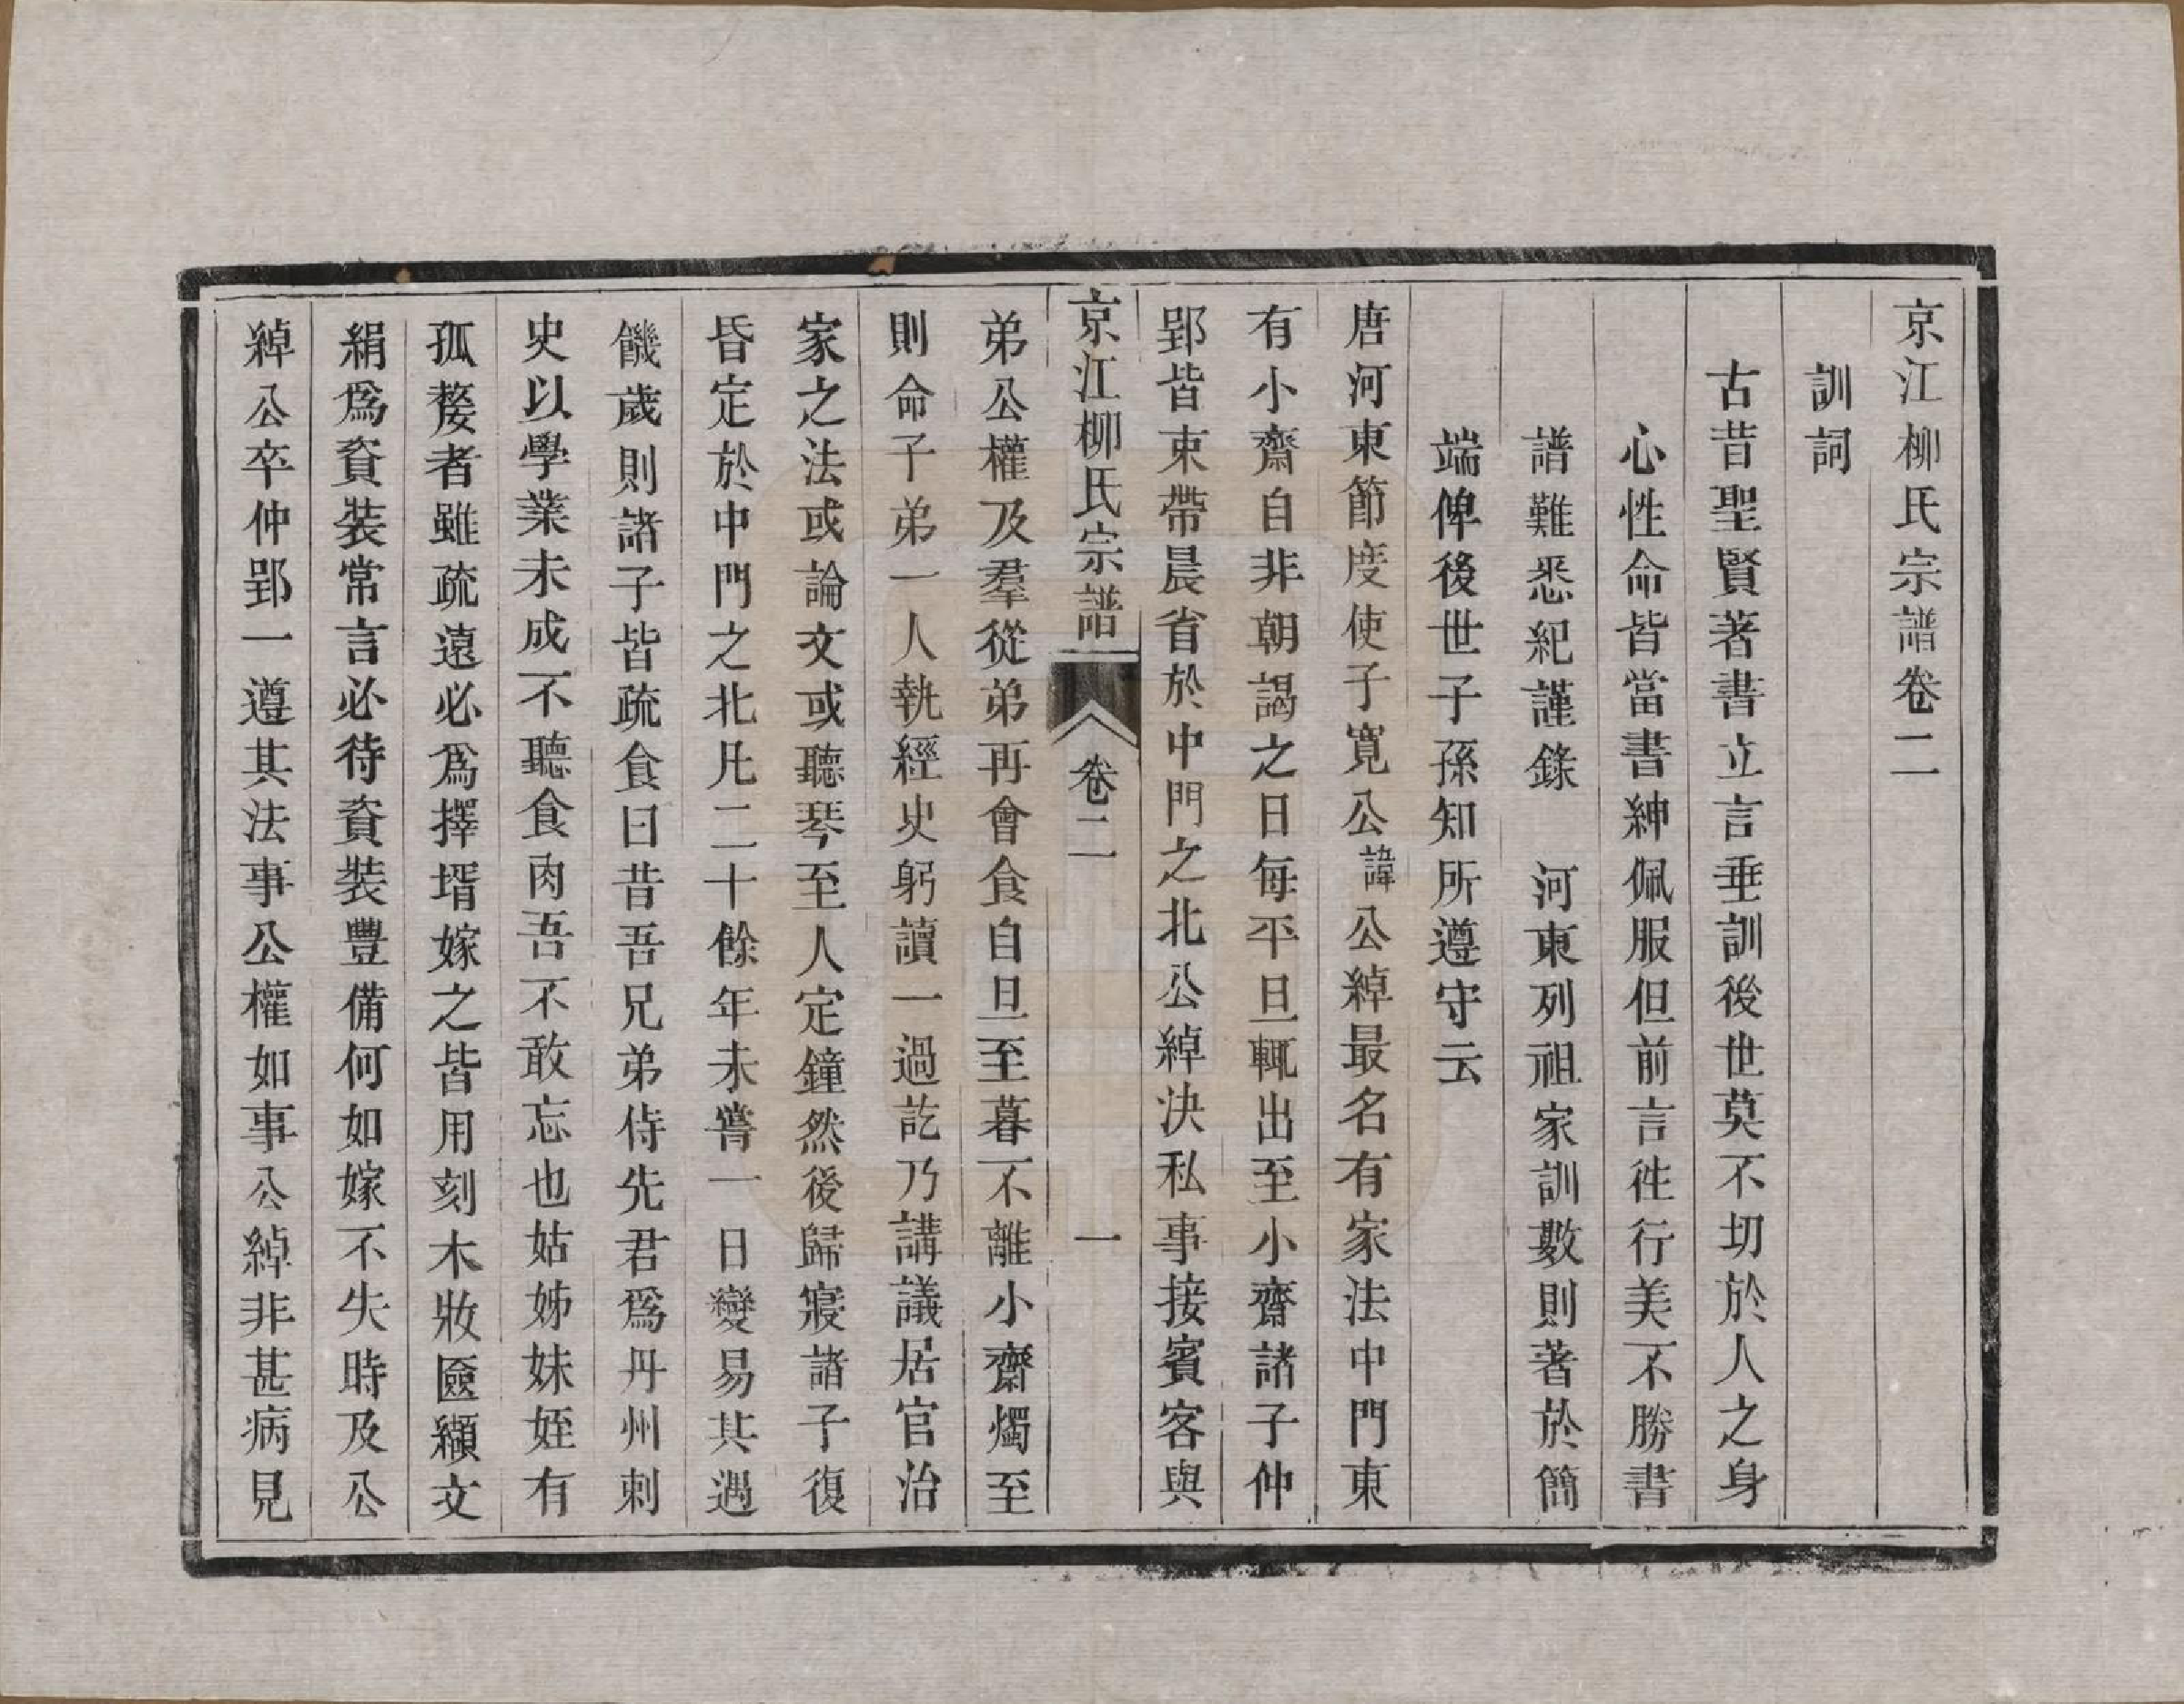 京江柳氏宗譜卷二
訓詞
古昔聖賢著書立言垂訓後世莫不切於人之身
心性命皆當書紳佩服但前言徃行美不勝書
譜難悉紀謹錄　河東列祖家訓數則著於簡
端俾後世子孫知所遵守云
唐河東節度使子寬公諱公綽最名有家法中門東
有小齋自非朝謁之日每平旦輒出至小齋諸子仲
郢皆束帶晨省於中門之北公綽決私事接賓客與
京江柳氏宗譜　卷二　一
弟公權及羣從弟再會食自旦至暮不離小齋燭至
則命子弟一人執經史躬讀一過訖乃講議居官治
家之法或論文或聽琴至人定鐘然後歸寢諸子復
昏定於中門之北凡二十餘年未嘗一日變易其遇
饑歲則諸子皆疏食曰昔吾兄弟侍先君爲丹州刺
史以學業未成不聽食肉吾不敢忘也姑姊妹姪有
孤嫠者雖疏遠必爲擇壻嫁之皆用刻木妝匳纈文
絹爲資裝常言必待資裝豐備何如嫁不失時及公
綽公卒仲郢一遵其法事公權如事公綽非甚病見